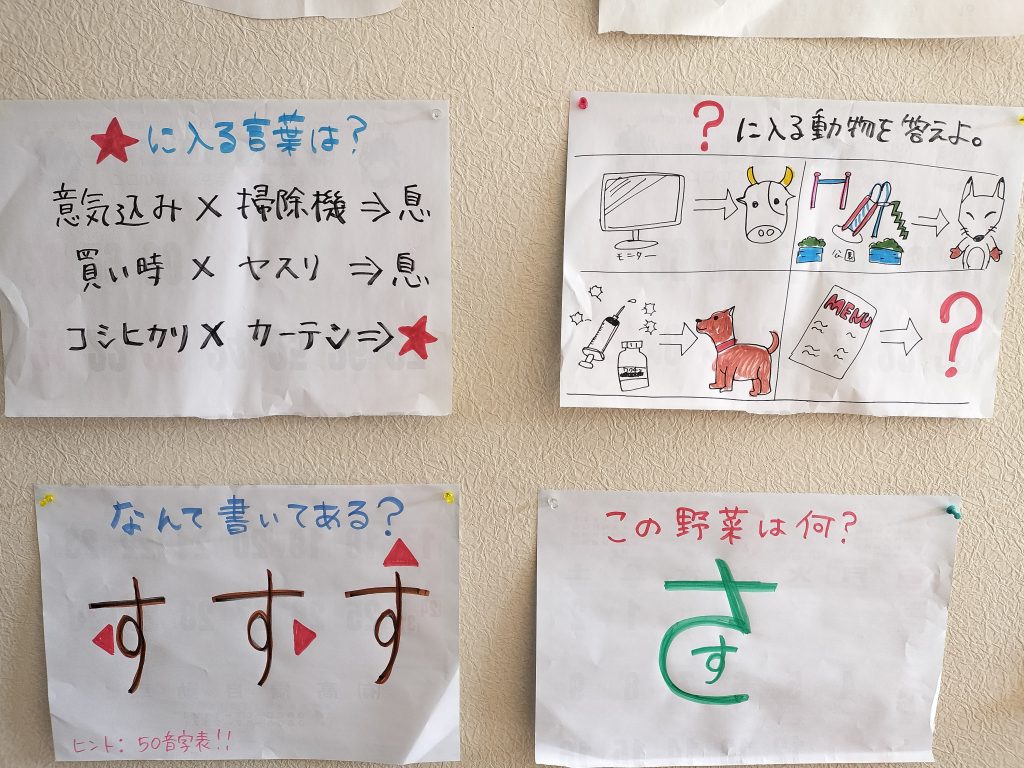 ★に入る言葉は？
意気込み × 掃除機 ⇒ 息
買い時 × ヤスリ ⇒ 息
コシヒカリ × カーテン ⇒ ★
？に入る動物を答えよ。
モニター
公園
ワクチン
MENU
？
なんて書いてある？
す す す
ヒント: 50音字表!!
この野菜は何？
さ
す